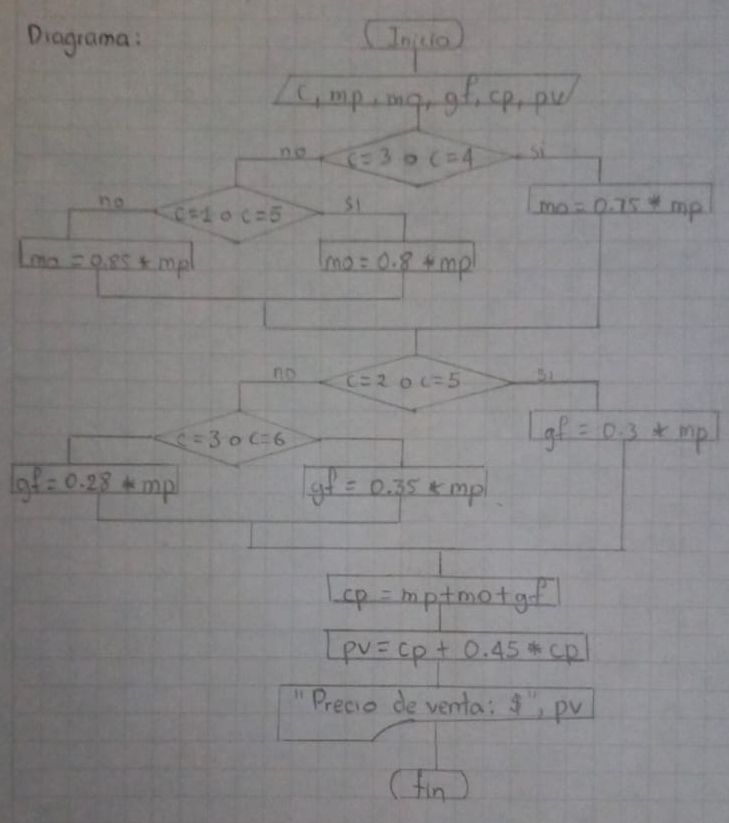 Diagrama:
Inicio
c, mp, mo, gf, cp, pv
no
c=3 o c=4
si
no
c=1 o c=5
si
mo = 0.75 * mp
mo = 0.85 * mp
mo = 0.8 * mp
no
c=2 o c=5
si
c=3 o c=6
gf = 0.3 * mp
gf = 0.28 * mp
gf = 0.35 * mp
cp = mp+mo+gf
pv = cp + 0.45 * cp
"Precio de venta: $", pv
fin